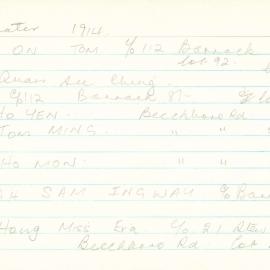 1914.
ON TOM c/o 112 Barrack
Lot. 92.
Quan See Ching.
c/o 112 Barrack St
HO YEN. Beechboro Rd
TOM MING. " "
HO MON. " "
SAM INGWAY c/o
Hong Miss Eva. c/o 21
Beechboro Rd. Lot